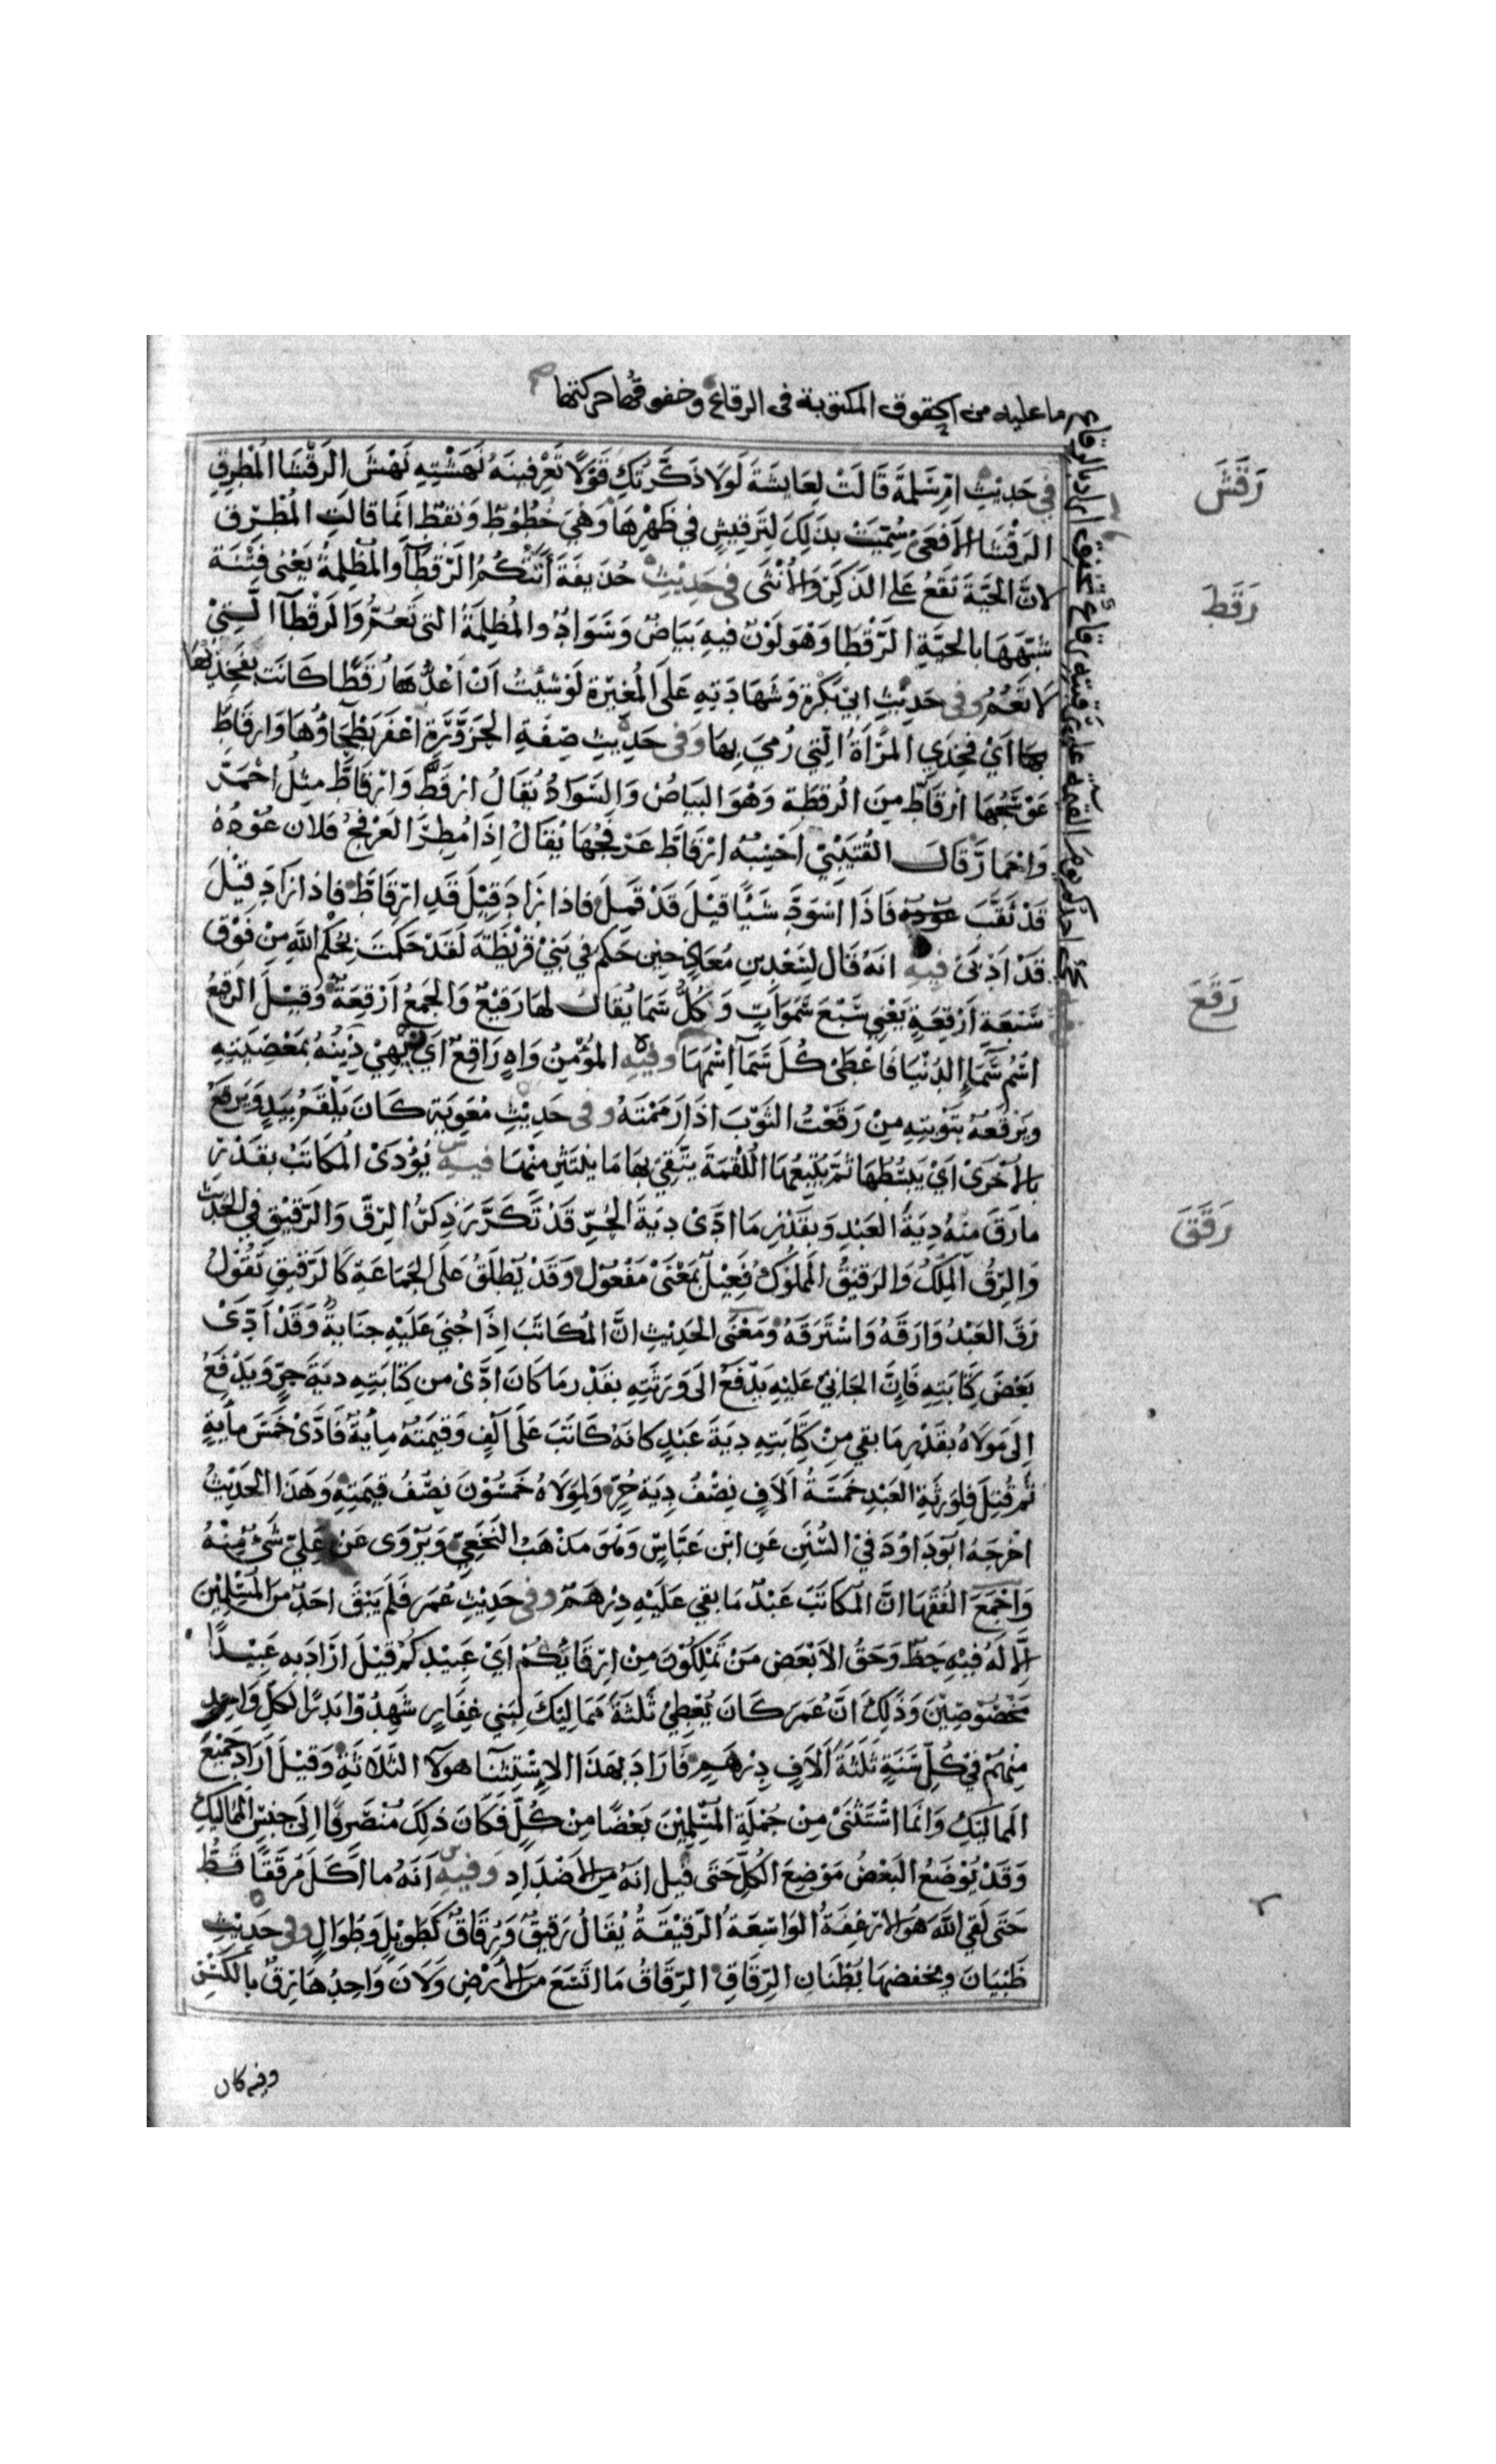 ما عليه من الحقوق المكتوبة فى الرقاع وخفوقها حركتها
يجئ احدكم يوم القيمة على رقبته رقاع تخفق اراد بالرقاع
رَقَشَ
فِي حَدِيْثِ امّ سَلمَةَ قَالَتْ لِعَايِشَةَ لَوْ لَا ذَكَّرْتُكِ قَوْلًا تَعْرِفِينَهُ نَهَشْتِهِ نَهْشَ الرَقْشَا المُطْرِقِ
الرَقْشَا الأَفعَىْ سُمِّيَتْ بِذَلِكَ لِتَرقِيشٍ فِي ظَهْرِهَا وَهْيَ خُطُوطٌ وَنُقَطٌ انَمَا قالَتِ المُطْرِقِ
رَقَطَ
لانَّ الحَيَّةَ تَقَعُ عَلَى الذَكَرِ وَالأُنْثَى فِى حَدِيْثِ حُذَيفَةَ أَتَتْكُمُ الرَقْطَآ وَالمُظْلِمَةُ يَعْنى فِتْنَةً
شَبَّهَهَا بالحَيَّةِ الرَّقْطَا وَهْوَ لَوْنٌ فيهِ بَيَاضٌ وَسَوَادٌ وَالمُظلِمَةُ التى تَعُمُّ وَالرَقْطَآ الَّتِيْ
لَا تَعُمُّ وفى حَدِيْثِ ابي بَكْرَة وَشَهَادَتِهِ عَلَى المُغِيْرَةِ لَوْ شِئْتُ انْ اَعُدَّ رُقَطًا كَانَت بِفَخِذَيْهَا
اَيْ فَخِذَيِ المَرْاَةِ الّتِي رُمِيَ بِهَا وَفى حَدِيْثِ صِفَةِ الحَزَوَّرَةِ اَغفَرَ بَطْحَاؤُهَا وَارقَاطَّ
عَوْسَجُهَا ارقَاطَّ مِنَ الرُقطَة وَهْوَ البَيَاضُ وَالسَوَادُ يُقَالُ ارْقَطَّ وَارْقَاطَّ مِثلُ احْمَرَّ
وَاحْمَارَّ قَالَ القُتَيْبِيُّ اَحْسِبُهُ ارْقَاطَّ عَرْفَجُهَا يُقَالُ اِذَا مُطِرَ العَرْفَجُ فَلَانَ عُوْدُهُ
قَدْ ثَقَّبَ عُودُه فَاذَا اسْوَدَّ شَيْئًا قِيْلَ قَدْ قَمِلَ فاذا زَادَ قِيْلَ قَدِ ارْقَاطَّ فاذا زَادَ قِيْلَ
رَقَعَ
قَدْ اَدْبَى فيه انَهُ قَال لِسَعْدِ بنِ مُعَاذٍ حينَ حَكَم فى بَنِيْ قُرَيْظَةَ لَقَدْ حَكَمتَ بِحُكْمِ اللّهِ مِنْ فَوْقِ
سَبْعَةِ اَرْقِعَةٍ يَعْنِي سَبْعَ سَمَوَاتٍ وَكُلُّ سَمَا يُقَالُ لهَا رَقِيْعٌ وَالجَمعُ اَرْقِعَةٌ وَقِيْلَ الرَقيْعُ
اسْمُ سَمَآءِ الدُنْيَا فَاعْطَىْ كُلَ سَمَآ اسْمَهَا وفيه المؤْمِنُ وَاهٍ رَاقِعٌ اَيْ يَهِيْ دِينُهُ بِمَعْصِيَتِهِ
وَيَرْقَعُهُ بِتَوْبَتِهِ مِنْ رَقَعْتُ الثَوْبَ اذَا رَمَمْتَهُ وفى حَدِيْثِ مُعَوِيَةَ كَانَ يَلْقَمُ بِيَدٍ وَيَرقَعُ
رَقَقَ
بِالأُخْرَىْ اَيْ يَبْسُطُهَا ثُمَّ يُتْبِعُهَا اللُقْمَةَ يَتَّقِيْ بِهَا مَا يَنْتَثِرُ مِنْهَا فيه يُؤْدَىْ المُكَاتَبُ بِقَدْرِ
مَا رَقَّ مِنهُ دِيَةَ العَبْدِ وَبِقَدْرِ مَا ادَّىْ دِيَةَ الحُرِّ قَدْ تَكَرَّرَ ذِكرُ الرِقّ وَالرَقيْقِ فِي الحَدِيْثِ
وَالرِقُّ المِلْكُ وَالرَقيْقُ المَملُوكُ فَعِيْلٌ بِمَعْنَىْ مَفْعُوْلٍ وَقَدْ يُطلَقُ عَلَى الجَمَاعَةِ كَالرَقيْقِ تَقُوْلُ
رَقَّ العَبْدُ وَارَقَّهُ وَاسْتَرَقَّهُ وَمَعْنَى الحَدِيْثِ انَّ المُكَاتَبَ اِذَا جُنِيَ عَلَيْهِ جِنَايَةٌ وَقَدْ ادَّىْ
بَعْضَ كِتَابَتِهِ فَاِنَّ الجَانِيَ عَلَيْهِ يَدْفَعُ الَى وَرَثَتِهِ بِقَدْرِ مَا كَانَ ادَّىْ مِنْ كِتَابَتِهِ دِيَةَ حُرٍّ وَيَدْفَعُ
اِلَى مَولَاهُ بِقَدْرِ مَا بَقِي مِنْ كِتَابَتِهِ دِيَةَ عَبْدٍ كَانَهُ كَاتَبَ عَلَى اَلْفٍ وَقِيْمَتُهُ مِايَةٌ فَادَّىْ خَمسَ مِايَةٍ
ثُمَ قُتِلَ فَلِوَرَثَةِ العَبْدِ خَمسَةُ اَلَافٍ نِصْفُ دِيَةِ حُرٍّ وَلِمَوْلَاهُ خَمسُوْنَ نِصْفُ قِيْمَتِهِ وَهَذَا الحَدِيْثُ
اخْرَجَهُ ابُو دَاوُدَ فِيْ السُنَنِ عَنِ ابْنِ عَبَّاسٍ وَهُوَ مَذْهَبُ النَخَعِيّ وَيُرْوَى عَنْ عَلِيّ شَيْءٌ مِنْهُ
وَاَجْمَعَ الفُقَهَا انَّ المُكَاتَبَ عَبْدٌ مَا بَقِيَ عَلَيْهِ دِرْهَمٌ وفى حَدِيْثِ عُمَر فَلَم يَبْقَ احَدٌ مِنَ المُسْلِمِيْنَ
اِلَّا لَهُ فِيْهِ حَظٌّ وَحَقٌّ الاّ بَعْضَ مَنْ تَمْلِكُوْنَ مِنْ اَرِقَّائِكُمْ اَيْ عَبِيْدِكُمْ قِيْلَ ارَادَ بِهِ عَبِيْدًا
مَخْصُوْصِيْنَ وَذَلِكَ انَّ عُمَرَ كَانَ يُعْطِيْ ثَلثَةَ مَمَالِيْكَ لِبَنِي غِفَارٍ شَهِدُوْا بَدْرًا لِكُلِّ وَاحِدٍ
مِنْهُمْ فِي كُلِّ سَنَةٍ ثَلَثَةَ اَلَافِ دِرْهَمٍ فَارَادَ بِهَذَا الاِسْتِثْنَا هَولَآ الثَلَاثَةِ وَقِيْلَ اَرَادَ جَمِيْعَ
المَمَالِيْكِ وَانَمَا اسْتَثْنَىْ مِنْ جُمْلَةِ المُسْلِمِيْنَ بَعْضًا مِنْ كُلٍّ فَكَانَ ذَلِكَ مُنْصَرِفًا اِلَى جِنْسِ المَمَالِيكِ
وَقَدْ يُوْضَعُ البَعْضُ مَوْضِعَ الكُلِّ حَتَى قِيلَ انَهُ مِنَ الاَضْدَادِ وَفيهِ اَنَهُ مَا اَكَلَ مُرَقَقًا قَطُّ
حَتَى لَقِيَ اللّهَ هُوَ الارْغِفَةُ الوَاسِعَةُ الرَقيْقَةُ يُقَالُ رَقيْقٌ وَرُقَاقٌ كَطَوِيْلٍ وَطُوَالٍ وفى حَدِيْثِ
ظَبْيَانَ ويخفضهَا بُطْنَان الرِقَاقِ الرِقَاقُ مَا اتَسَعَ مِنَ الأَرْضِ وَلَانَ وَاحِدُهَا رِقٌّ بِالكَسْرِ
وفيه كان